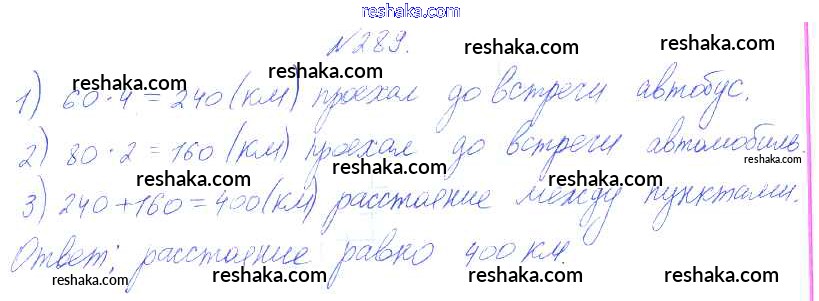 reshaka.com
№289.
1) 60·4=240 (км) проехал до встречи автобус.
2) 80·2=160 (км) проехал до встречи автомобиль.
3) 240+160=400 (км) расстояние между пунктами.
Ответ: расстояние равно 400 км.
reshaka.com
reshaka.com
reshaka.com
reshaka.com
reshaka.com
reshaka.com
reshaka.com
reshaka.com
reshaka.com
reshaka.com
reshaka.com
reshaka.com
reshaka.com